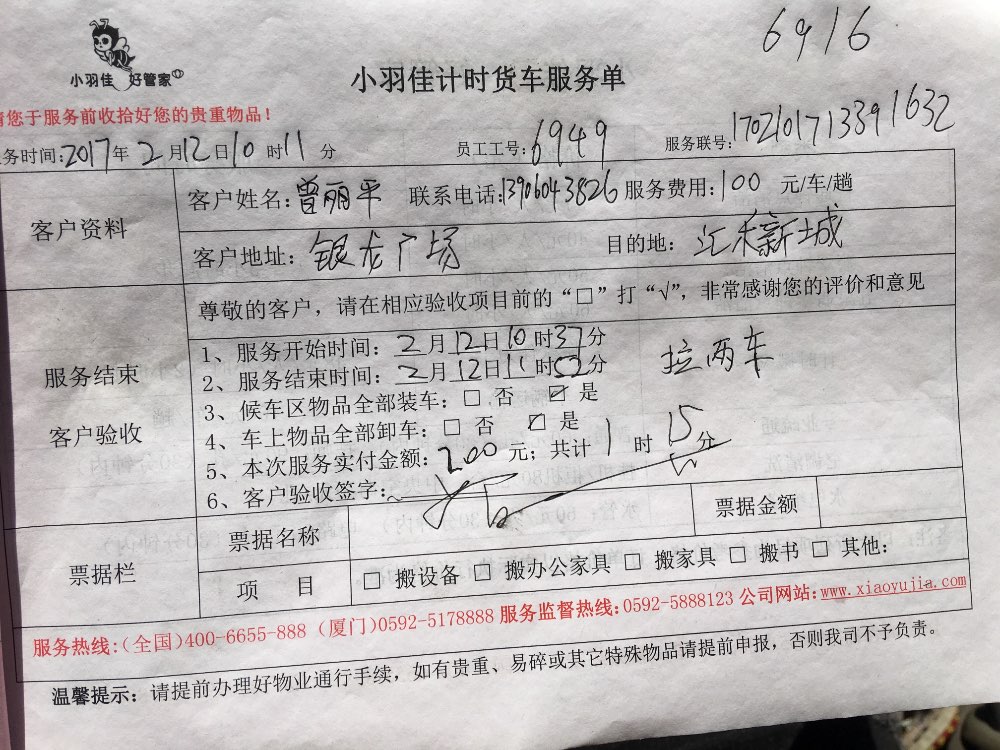 6916
小羽佳 好管家
小羽佳计时货车服务单
请您于服务前收拾好您的贵重物品！
务时间:2017年 2 月12日10 时11 分 员工工号:6949 服务联号:1702101713391632
客户资料
客户姓名:曾丽平 联系电话:13906043826 服务费用:100 元/车/趟
客户地址: 银龙广场 目的地: 汇禾新城
服务结束
客户验收
尊敬的客户，请在相应验收项目前的“□”打“√”，非常感谢您的评价和意见
1、服务开始时间: 2 月 12 日 10 时 37 分
2、服务结束时间: 2 月 12 日 11 时 52 分
拉两车
3、候车区物品全部装车: □ 否 ☑ 是
4、车上物品全部卸车: □ 否 ☑ 是
5、本次服务实付金额: 200 元；共计 1 时 15 分
6、客户验收签字:
票据栏
票据名称 票据金额
项 目 □ 搬设备 □ 搬办公家具 □ 搬家具 □ 搬书 □ 其他:
服务热线:(全国)400-6655-888 (厦门)0592-5178888 服务监督热线:0592-5888123 公司网站:www.xiaoyujia.com
温馨提示: 请提前办理好物业通行手续，如有贵重、易碎或其它特殊物品请提前申报，否则我司不予负责。